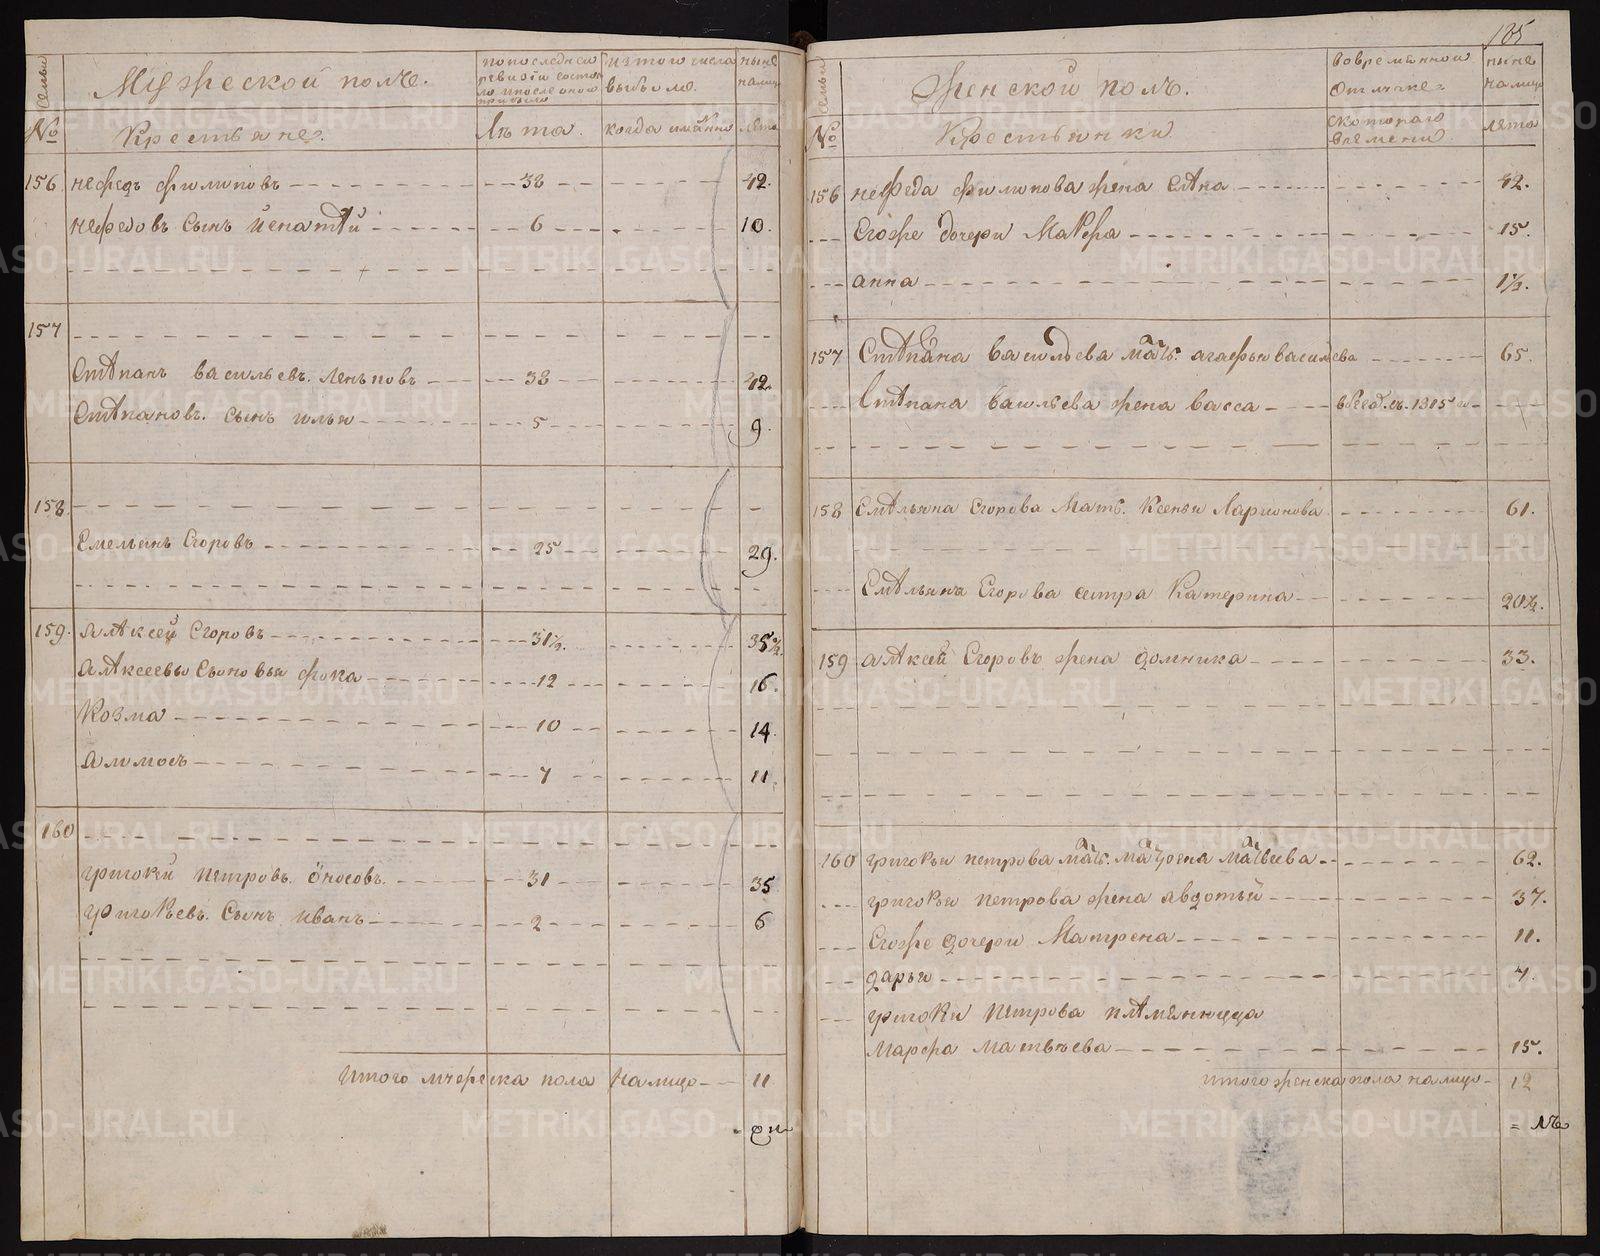 Семьи
Мужеской полъ.
попоследней ревизіи состояло ипослеоной прибыло
изтого числа выбыло.
ныне налицо
№
Крестьяне.
Лѣта.
когда имянно
лѣта
156. нефедъ филиповъ 38 42.
нефедовъ сынъ ипатій 6 10.
157
Степанъ васильевъ. 38 42.
Степановъ. сынъ илья 5 9.
158.
Емельянъ Егоровъ 25 29.
159. алексей Егоровъ 31½. 35½
алексеевы сыновья фока 12 16.
Козма 10 14.
7 11.
160
григорей петровъ. 31 35
григорьевъ. сынъ иванъ 2 6
итого мужеска пола налицо 11
105
Семьи
Женской полъ.
вовремянной отлучке.
ныне налицо
№
Крестьянки
скотораго времени
лета
156 нефеда филипова жена елена 42.
Егоже дочери Марфа 15.
анна 1½.
157 Степана васильева мать. агафья васильева 65.
Степана васильева жена васса 1815
158 Емельяна Егорова мать. Ксенья Ларионова 61.
Емельяна Егорова сестра Катерина 20½.
159 алексей Егоровъ жена домника 33.
160 григорья петрова мать. матвеева 62.
григорья петрова жена авдотья 37.
Егоже дочери Матрена 11.
дарья 7.
григорья петрова племянница
Марфа матвѣева 15.
итого женска пола налицо 12
METRIKI.GASO-URAL.RU